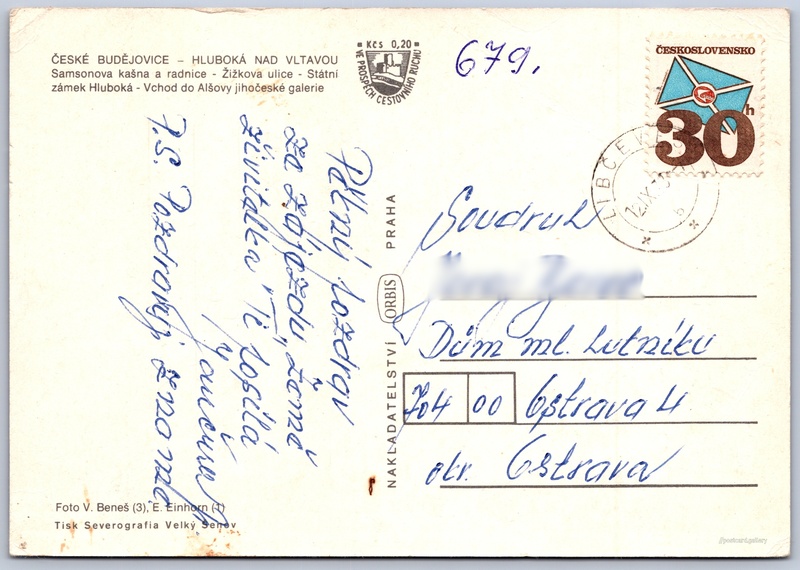 ČESKÉ BUDĚJOVICE – HLUBOKÁ NAD VLTAVOU
Samsonova kašna a radnice - Žižkova ulice - Státní
zámek Hluboká - Vchod do Alšovy jihočeské galerie
Kčs 0,20
VE PROSPĚCH CESTOVNÍHO RUCHU
679.
ČESKOSLOVENSKO
30h
LIBČE
12.IX.
b
Pěkný pozdrav
ze zájezdu "Země
živitelka" Ti posílá
P.S. Pozdravuj
NAKLADATELSTVÍ ORBIS PRAHA
Soudruh
Dům ml. Lutníků
704 00 Ostrava 4
okr. Ostrava
Foto V. Beneš (3), E. Einhorn (1)
Tisk Severografia Velký Šenov
//postcard.gallery